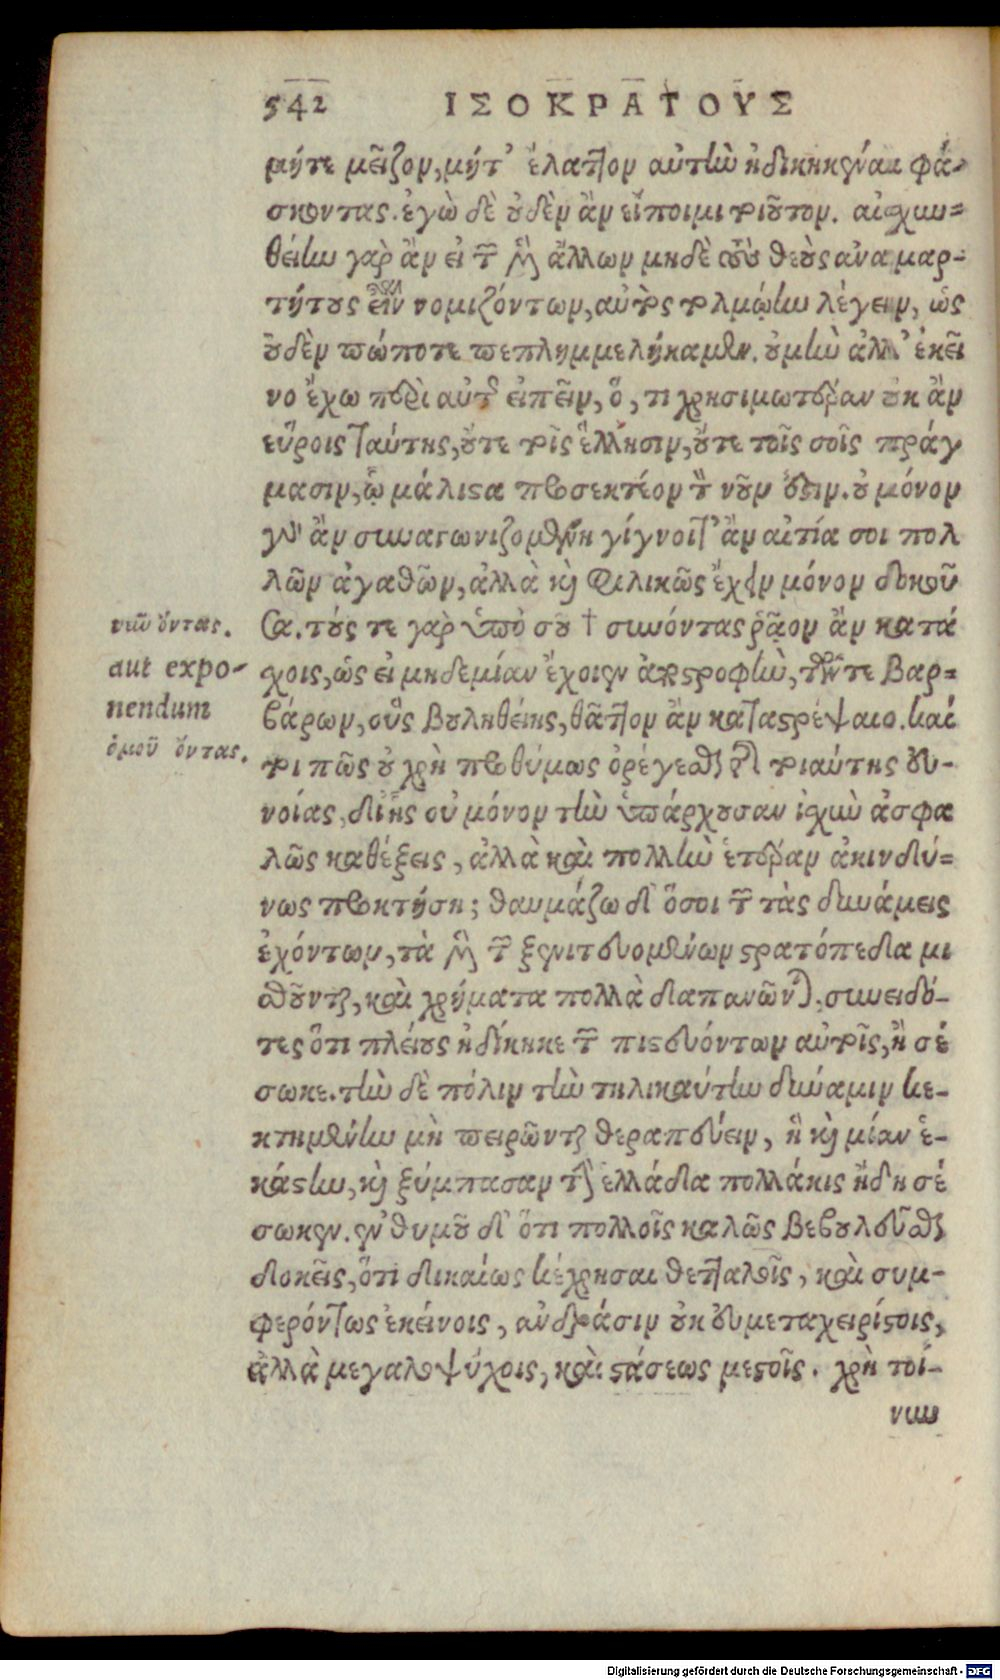 542 ΙΣΟΚΡΑΤΟΥΣ
μήτε μεῖζον, μήτ' ἔλαττον αὐτὴν ἠδικηκέναι φά-
σκοντας. ἐγὼ δὲ οὐδὲν ἂν εἴποιμι τοιοῦτον. αἰσχυν-
θείην γὰρ ἂν εἰ τῶν μὲν ἄλλων μηδὲ τοὺς θεοὺς ἀναμαρ-
τήτους εἶναι νομιζόντων, αὐτὸς τολμῴην λέγειν, ὡς
οὐδὲν πώποτε πεπλημμελήκαμεν. οὐ μὴν ἀλλ' ἐκεῖ
νο ἔχω περὶ αὐτῆς εἰπεῖν, ὅ, τι χρησιμωτέραν οὐκ ἂν
εὕροις ταύτης, οὔτε τοῖς ἕλλησιν, οὔτε τοῖς σοῖς πράγ
μασιν, ᾧ μάλιστα προσεκτέον τὸν νοῦν ἐστιν. οὐ μόνον
γὰρ ἂν συναγωνιζομένη γίγνοιτ' ἂν αἰτία σοι πολ
λῶν ἀγαθῶν, ἀλλὰ καὶ φιλικῶς ἔχειν μόνον δοκοῦ
σα. τούς τε γὰρ ὑπὸ σοῦ † συνόντας ῥᾷον ἂν κατά
χοις, ὡς εἰ μηδεμίαν ἔχοιεν ἀποστροφὴν, τῶν τε βαρ-
βάρων, οὓς βουληθείης, θᾶττον ἂν καταστρέψαιο. καί
τοι πῶς οὐ χρὴ προθύμως ὀρέγεσθαι τῆς τοιαύτης εὐ-
νοίας, δι' ἧς οὐ μόνον τὴν ὑπάρχουσαν ἰσχὺν ἀσφα
λῶς καθέξεις, ἀλλὰ καὶ πολλὴν ἑτέραν ἀκινδύ-
νως προκτήσῃ; θαυμάζω δ' ὅσοι τῶν τὰς δυνάμεις
ἐχόντων, τὰ μὲν τῶν ξενιτευομένων στρατόπεδα μι
σθοῦνται, καὶ χρήματα πολλὰ δαπανῶνται, συνειδό-
τες ὅτι πλείους ἠδίκηκε τῶν πιστευόντων αὐτοῖς, ἢ σέ
σωκε. τὴν δὲ πόλιν τὴν τηλικαύτην δύναμιν κε-
κτημένην μὴ πειρῶνται θεραπεύειν, ἣ καὶ μίαν ἑ-
κάστην, καὶ ξύμπασαν τὴν ἑλλάδα πολλάκις ἤδη σέ
σωκεν. ἐνθυμοῦ δ' ὅτι πολλοῖς καλῶς βεβουλεῦσθαι
δοκεῖς, ὅτι δικαίως κέχρησαι θετταλοῖς, καὶ συμ-
φερόντως ἐκείνοις, ἀνδράσιν οὐκ εὐμεταχειρίστοις,
ἀλλὰ μεγαλοψύχοις, καὶ στάσεως μεστοῖς. χρὴ τοί-
νυν
νῦν ὄντας.
aut expo-
nendum
ὁμοῦ ὄντας.
Digitalisierung gefördert durch die Deutsche Forschungsgemeinschaft - DFG